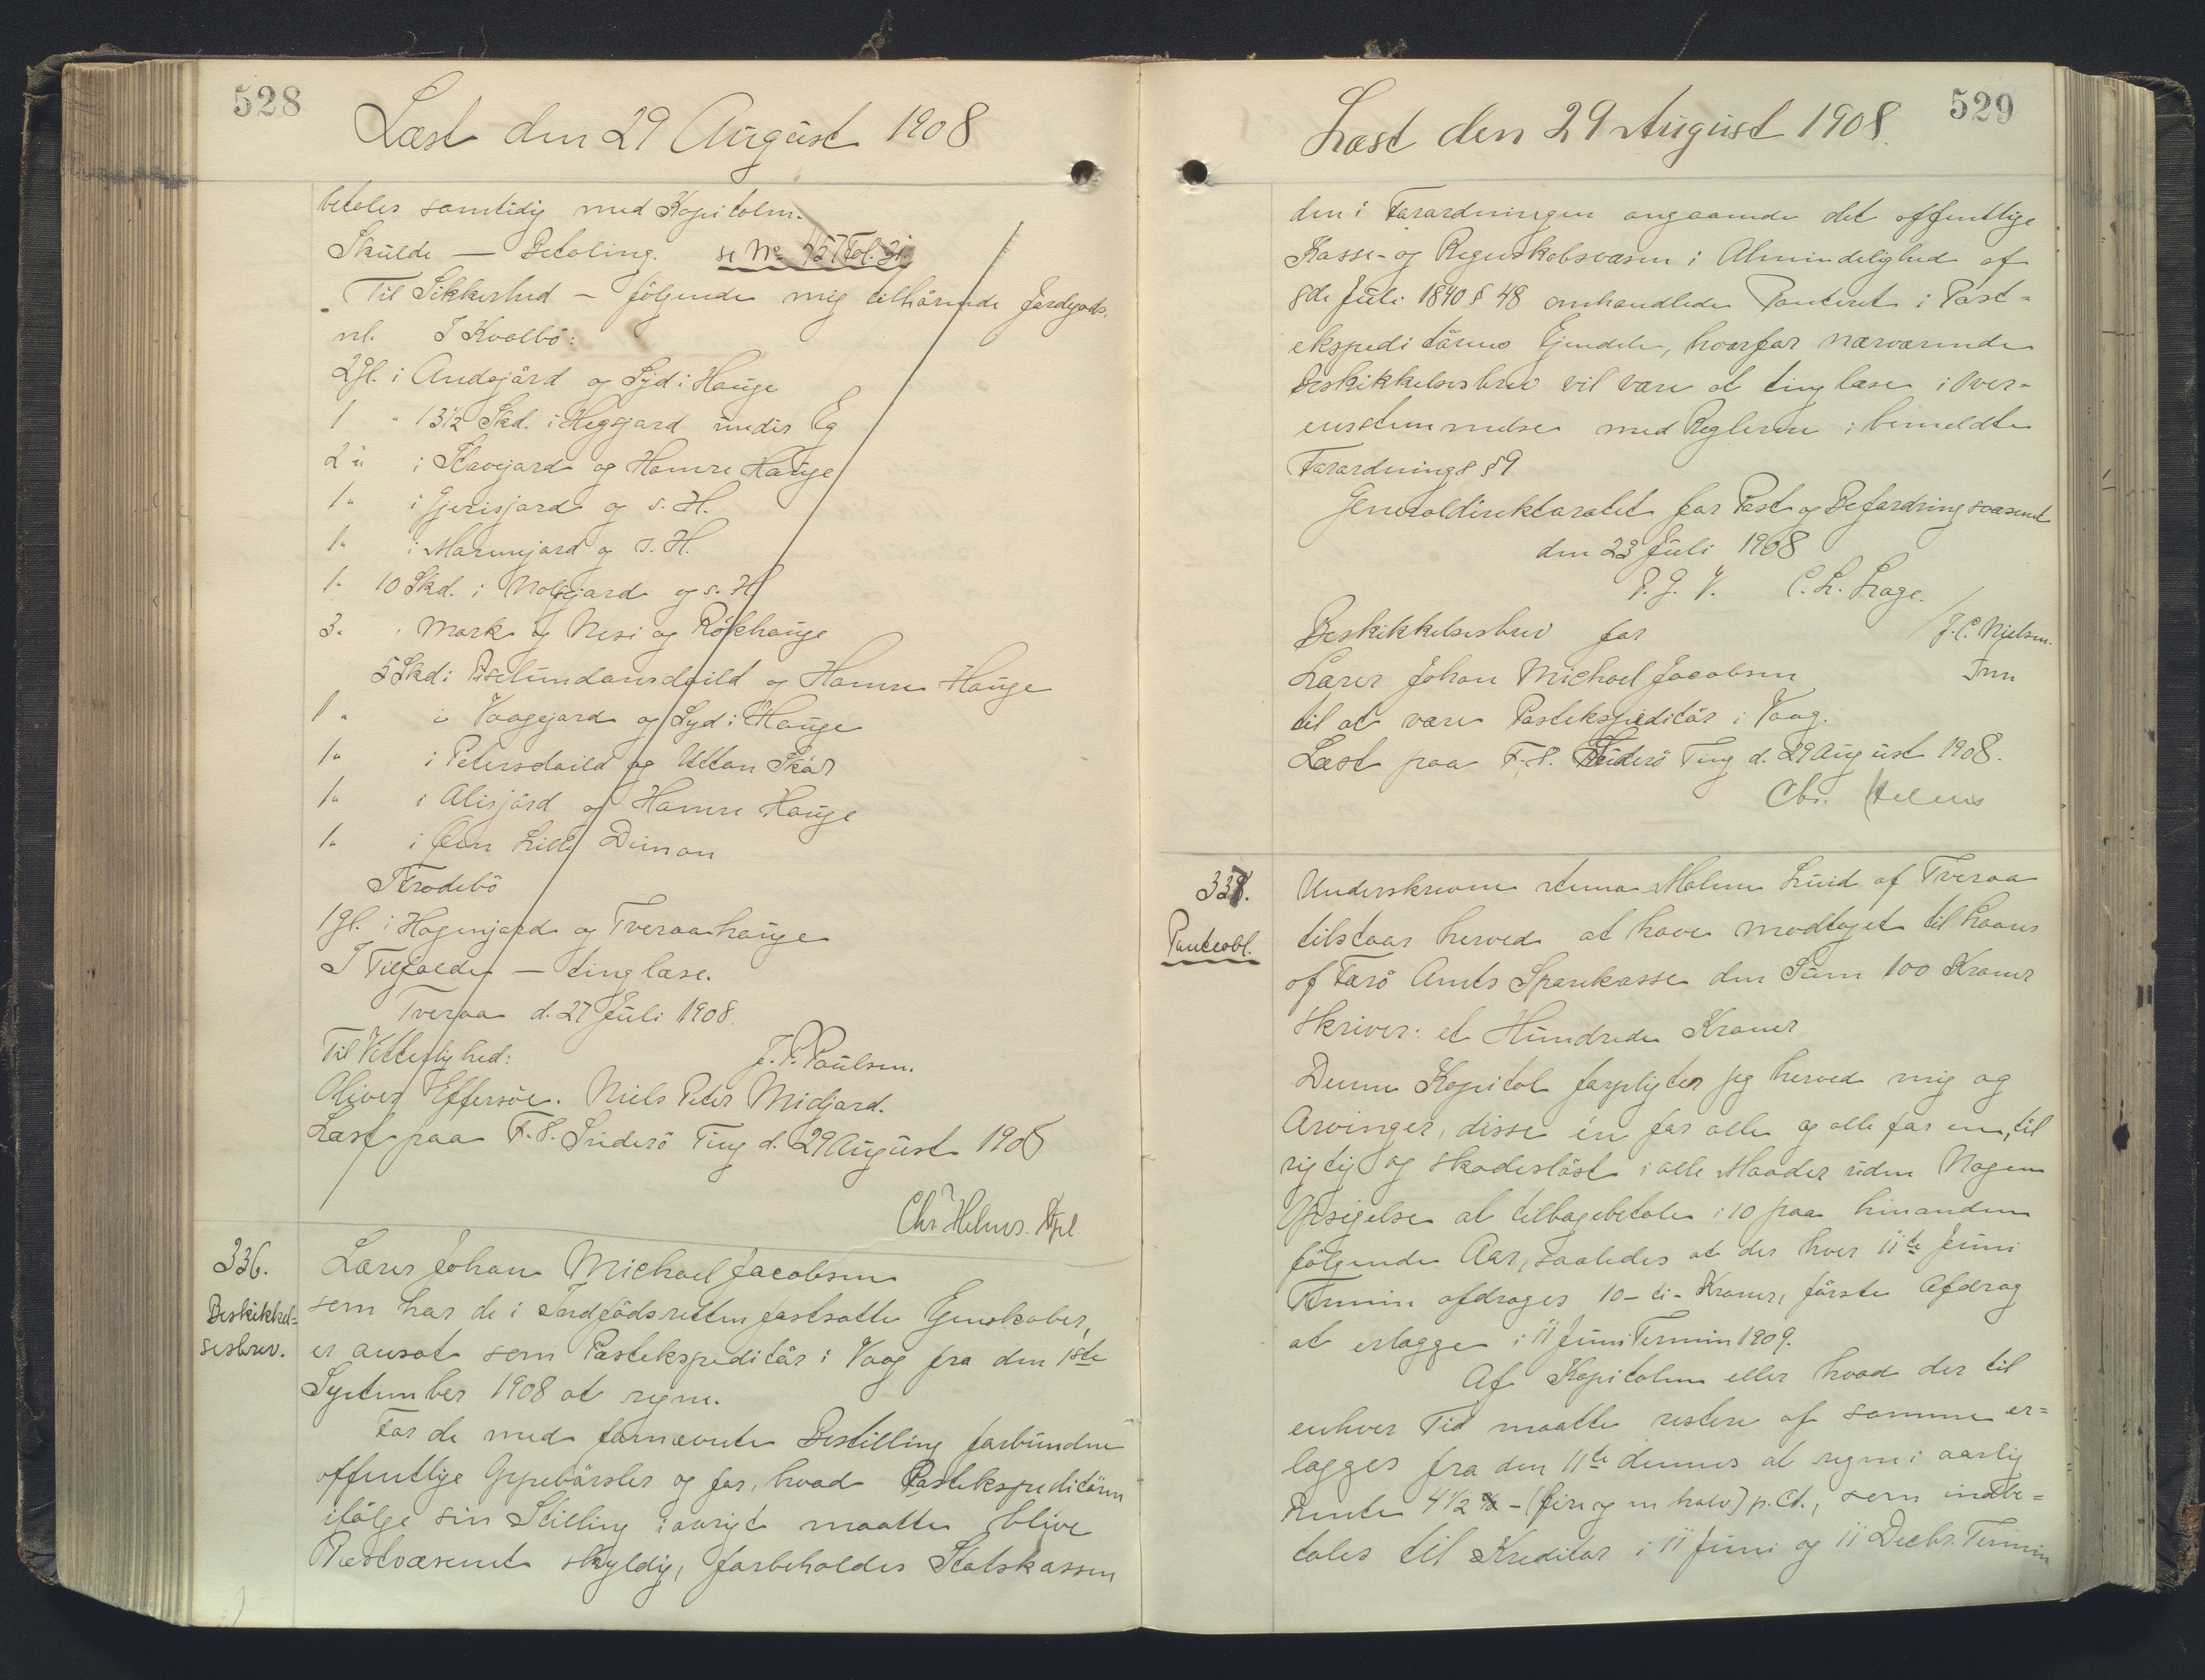 528
Læst den 29 August 1908
betales samtidig med Kapitalen.
Skulde — Betaling. se No 457 Fol. 31.
Til Sikkerhed - følgende mig tilhørende Jordgods,
nl. I Kvalbø:
2 Gl. i Andsjård og Syd i Hauge
1 " 13 1/2 Skd. i Høgsjard under Eg
2 " i Stavijard og Hamre Hauge
1 " i Gjerisjard og s. H.
1 " i Marunjard og s. H.
1 " 10 Skd. i Nolsjard og s. H
3 " Mark og Nesi og Rókhauge
5 Skd i og Hamre Hauge
1 " i Vaagsjard og Syd i Hauge
1 " i Petersdeild og Uttan Skád
1 " i Alisjård og Hamre Hauge
1 " i Øen Lille Dimon
I Frodebö
1 Gl. i Hogenjard og Tveraahauge
I Tilfælde — tinglæse.
Tveraa d. 27 Juli 1908.
Til Vitterlighed: J. P. Poulsen.
Oliver Effersöe. Niels Peter Midjard.
Læst paa F. S. Suderö Ting d. 29 August 1908
Chr Helms. Kpl
336.
Beskikkel=
sesbrev.
Lærer Johan Michael Jacobsen
som har de i Indfødsretten fastsatte Egenskaber,
er ansat som Postekspeditör i Vaag fra den 1ste
September 1908 at regne.
For de med fornævnte Bestilling forbundne
offentlige Oppebörsler og for, hvad Postekspeditören
ifölge sin Stilling iövrigt maatte blive
Postvæsenet skyldig, forbeholdes Statskassen
529
Læst den 29 August 1908.
den i Forordningen angaaende det offentlige
Kasse- og Regnskabsvæsen i Almindelighed af
8de Juli 1840 § 48 omhandlede Panteret i Post=
ekspeditörens Ejendele, hvorfor nærværende
Beskikkelsesbrev vil være at tinglæse i Over=
ensstemmelse med Reglerne i bemeldte
Forordnings § 9
Generaldirektoratet for Post og Befordringsvæsenet
den 23 Juli 1908
P. G. V. C. L. Lage.
Beskikkelsesbrev for / J. C. Nielsen.
Lærer Johan Michael Jacobsen Fm
til at være Postekspeditör i Vaag.
Læst paa F. S. Suderö Ting d. 29 August 1908.
Chr. Helms
337.
Panteobl.
Underskrevne Anna Malene Luid af Tveraa
tilstaar herved at have modtaget til Laans
af Færö Amts Sparekasse den Sum 100 Kroner
skriver: et Hundrede Kroner
Denne Kapital forpligter jeg herved mig og
Arvinger, disse én for alle og alle for en, til
rigtig og skadeslöst i alle Maader uden Nogen
Opsigelse at tilbagebetale i 10 paa hinanden
fölgende Aar, saaledes at der hver 11te Juni
Termin afdrages 10 - ti - Kroner, förste Afdrag
at erlægge i 11 Juni Termin 1909.
Af Kapitalen eller hvad der til
enhver Tid maatte restere af samme er=
lægges fra den 11te dennes at regne i aarlig
Rente 4 1/2 % - (fire og en halv) p. Ct., som indbe=
tales til Kreditor i 11 Juni og 11 Decbr. Termin